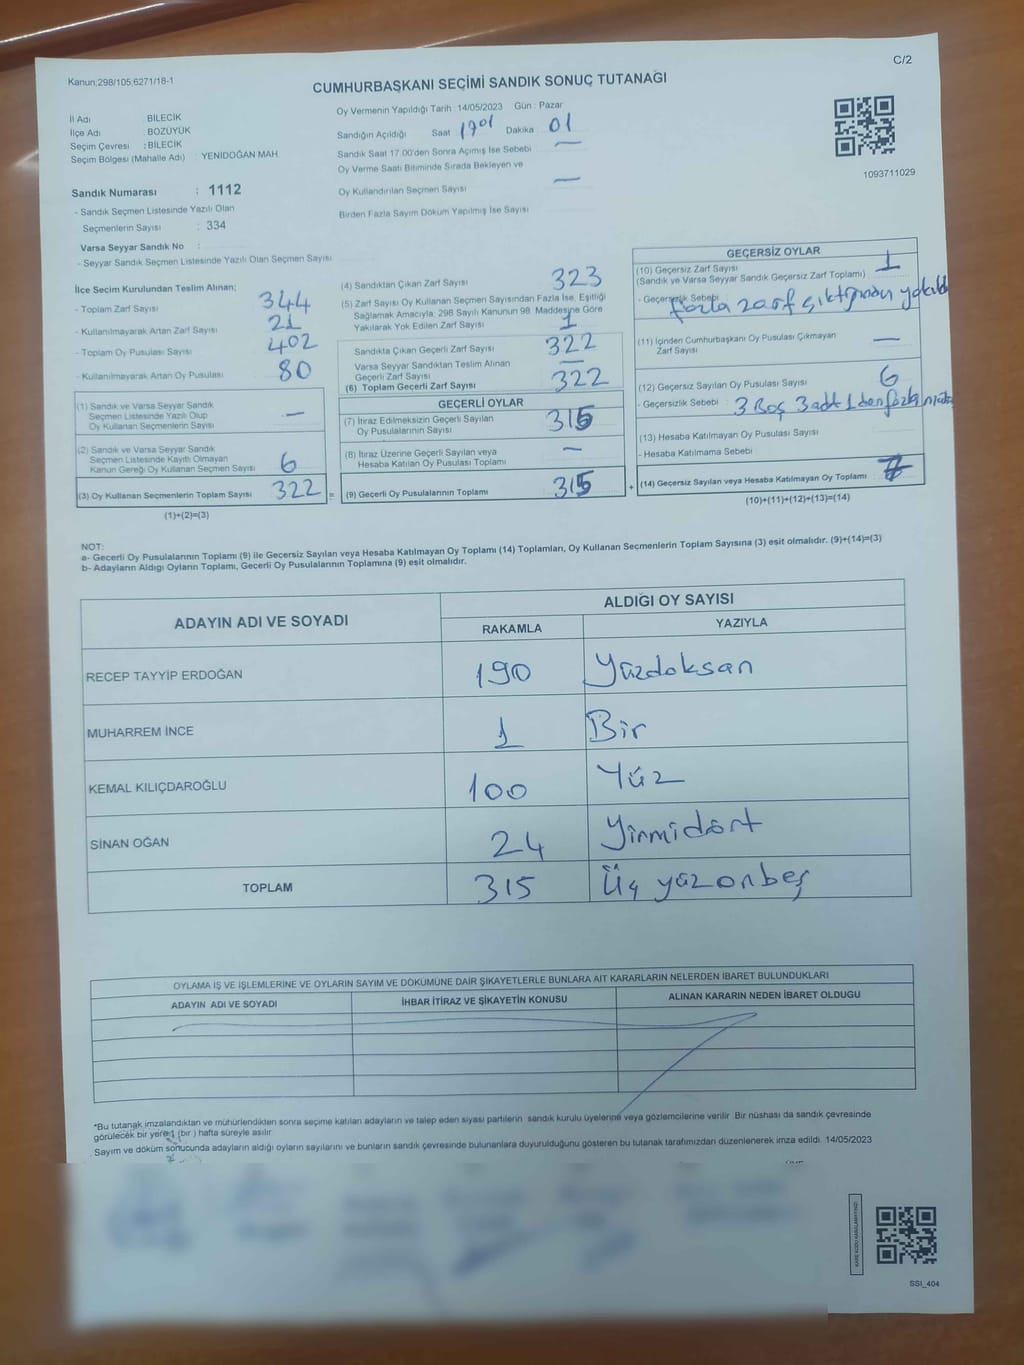 Kanun;298/105,6271/18-1
C/2
CUMHURBAŞKANI SEÇİMİ SANDIK SONUÇ TUTANAĞI
İl Adı BİLECİK
İlçe Adı BOZÜYÜK
Seçim Çevresi : BİLECİK
Seçim Bölgesi (Mahalle Adı) : YENİDOĞAN MAH
Sandık Numarası : 1112
- Sandık Seçmen Listesinde Yazılı Olan
Seçmenlerin Sayısı : 334
Varsa Seyyar Sandık No :
- Seyyar Sandık Seçmen Listesinde Yazılı Olan Seçmen Sayısı
Oy Vermenin Yapıldığı Tarih : 14/05/2023 Gün : Pazar
Sandığın Açıldığı Saat 1701 Dakika 01
Sandık Saat 17:00'den Sonra Açımış İse Sebebi —
Oy Verme Saati Bitiminde Sırada Bekleyen ve
Oy Kullandırılan Seçmen Sayısı —
Birden Fazla Sayım Döküm Yapılmış İse Sayısı
1093711029
İlçe Secim Kurulundan Teslim Alınan;
- Toplam Zarf Sayısı 344
- Kullanılmayarak Artan Zarf Sayısı 21
- Toplam Oy Pusulası Sayısı 402
- Kullanılmayarak Artan Oy Pusulası 80
(1) Sandık ve Varsa Seyyar Sandık
Seçmen Listesinde Yazılı Olup
Oy Kullanan Seçmenlerin Sayısı —
(2) Sandık ve Varsa Seyyar Sandık
Seçmen Listesinde Kayıtlı Olmayan
Kanun Gereği Oy Kullanan Seçmen Sayısı 6
(3) Oy Kullanan Seçmenlerin Toplam Sayısı 322
(1)+(2)=(3)
=
(4) Sandıktan Çıkan Zarf Sayısı 323
(5) Zarf Sayısı Oy Kullanan Seçmen Sayısından Fazla İse, Eşitliği
Sağlamak Amacıyla, 298 Sayılı Kanunun 98. Maddesine Göre
Yakılarak Yok Edilen Zarf Sayısı 1
Sandıkta Çıkan Geçerli Zarf Sayısı 322
Varsa Seyyar Sandıktan Teslim Alınan
Geçerli Zarf Sayısı —
(6) Toplam Geçerli Zarf Sayısı 322
GEÇERLİ OYLAR
(7) İtiraz Edilmeksizin Geçerli Sayılan
Oy Pusulalarının Sayısı 315
(8) İtiraz Üzerine Geçerli Sayılan veya
Hesaba Katılan Oy Pusulası Toplamı —
(9) Geçerli Oy Pusulalarının Toplamı 315
+
GEÇERSİZ OYLAR
(10) Geçersiz Zarf Sayısı 1
(Sandık ve Varsa Seyyar Sandık Geçersiz Zarf Toplamı)
- Geçersizlik Sebebi fazla zarf çıktığından yakıldı
(11) İçinden Cumhurbaşkanı Oy Pusulası Çıkmayan
Zarf Sayısı —
(12) Geçersiz Sayılan Oy Pusulası Sayısı 6
- Geçersizlik Sebebi : 3 Boş 3 adt 1 den fazla
(13) Hesaba Katılmayan Oy Pusulası Sayısı
- Hesaba Katılmama Sebebi
(14) Geçersiz Sayılan veya Hesaba Katılmayan Oy Toplamı 7
(10)+(11)+(12)+(13)=(14)
NOT:
a- Geçerli Oy Pusulalarının Toplamı (9) ile Geçersiz Sayılan veya Hesaba Katılmayan Oy Toplamı (14) Toplamları, Oy Kullanan Secmenlerin Toplam Sayısına (3) eşit olmalıdır. (9)+(14)=(3)
b- Adayların Aldığı Oyların Toplamı, Geçerli Oy Pusulalarının Toplamına (9) eşit olmalıdır.
ADAYIN ADI VE SOYADI ALDIĞI OY SAYISI
RAKAMLA YAZIYLA
RECEP TAYYİP ERDOĞAN 190 Yüzdoksan
MUHARREM İNCE 1 Bir
KEMAL KILIÇDAROĞLU 100 Yüz
SİNAN OĞAN 24 Yirmidört
TOPLAM 315 Üç yüzonbeş
OYLAMA İŞ VE İŞLEMLERİNE VE OYLARIN SAYIM VE DÖKÜMÜNE DAİR ŞİKAYETLERLE BUNLARA AİT KARARLARIN NELERDEN İBARET BULUNDUKLARI
ADAYIN ADI VE SOYADI İHBAR İTİRAZ VE ŞİKAYETİN KONUSU ALINAN KARARIN NEDEN İBARET OLDUGU
*Bu tutanak imzalandıktan ve mühürlendikten sonra seçime katılan adayların ve talep eden siyasi partilerin sandık kurulu üyelerine veya gözlemcilerine verilir. Bir nüshası da sandık çevresinde
görülecek bir yere 1 (bir) hafta süreyle asılır
Sayım ve döküm sonucunda adayların aldığı oyların sayılarını ve bunların sandık çevresinde bulunanlara duyurulduğunu gösteren bu tutanak tarafımızdan düzenlenerek imza edildi. 14/05/2023
SSİ_404